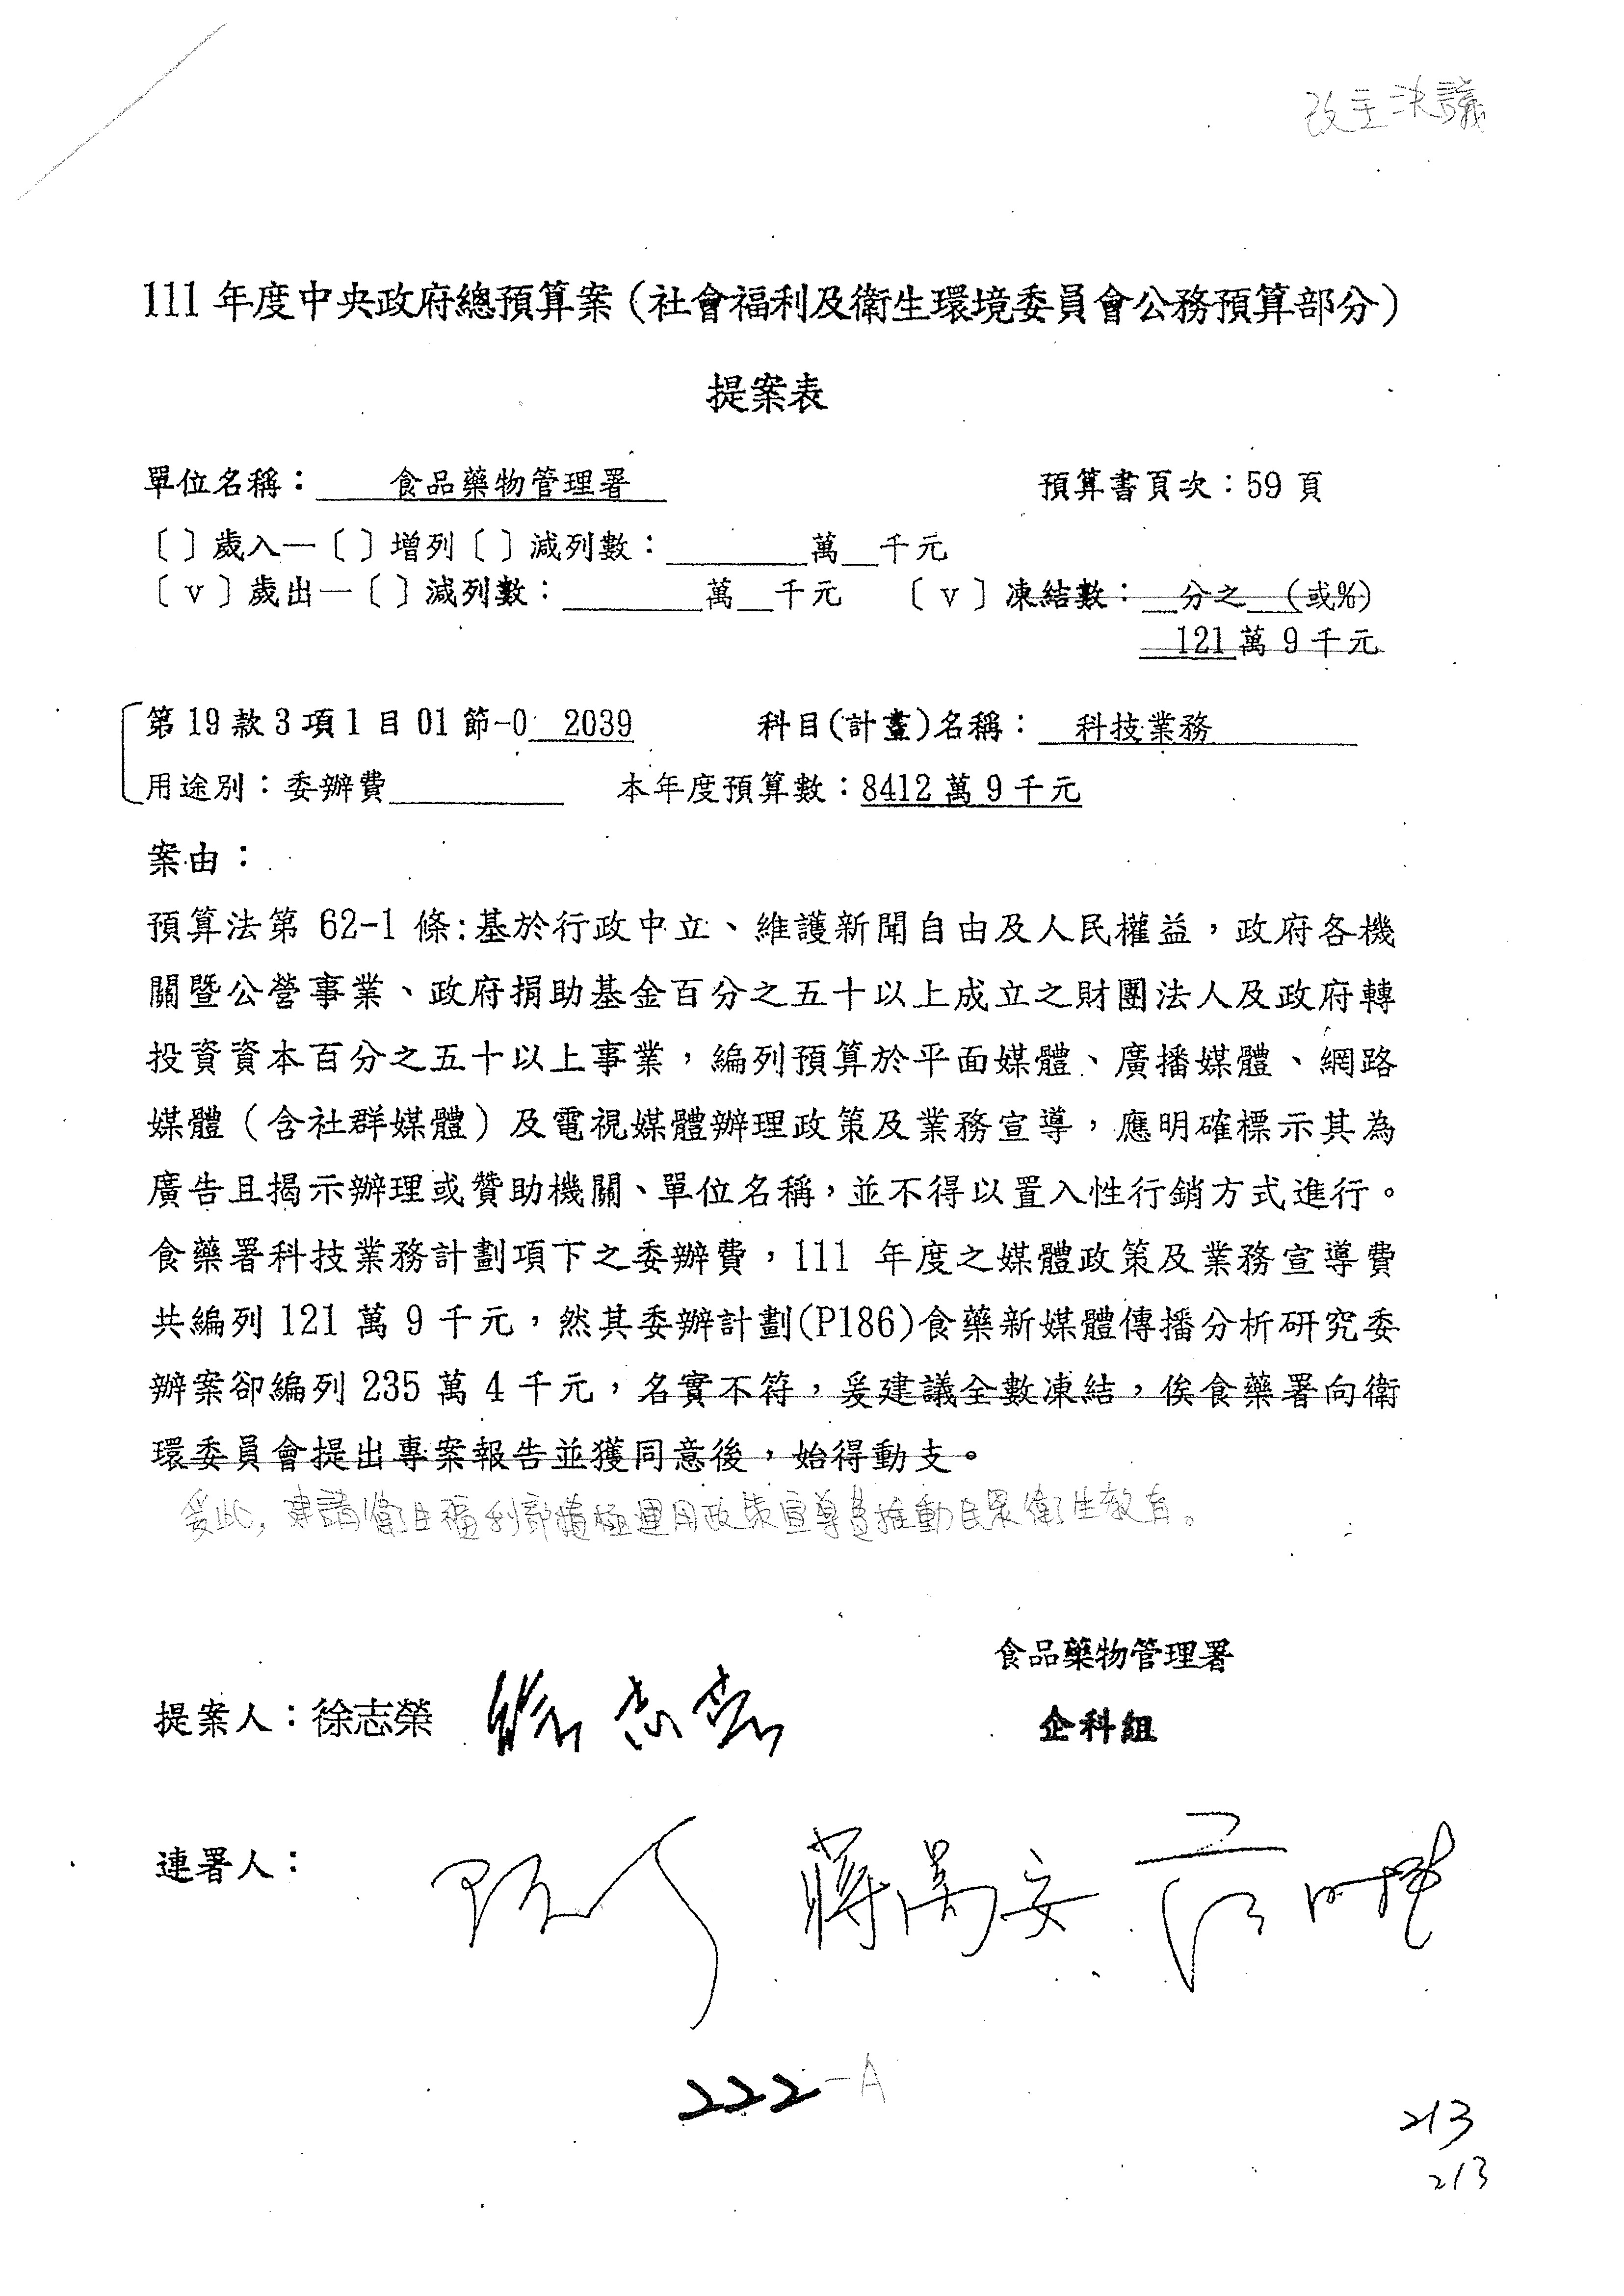 改主決議
111 年度中央政府總預算案(社會福利及衛生環境委員會公務預算部分)
提案表
單位名稱： 食品藥物管理署 預算書頁次：59 頁
〔 〕歲入—〔 〕增列〔 〕減列數：________萬__千元
〔 v 〕歲出—〔 〕減列數：________萬__千元 〔 v 〕凍結數：__分之__(或%)
121 萬 9 千元
第 19 款 3 項 1 目 01 節-0 2039 科目(計畫)名稱： 科技業務
用途別：委辦費__________ 本年度預算數：8412 萬 9 千元
案由：
預算法第 62-1 條:基於行政中立、維護新聞自由及人民權益，政府各機
關暨公營事業、政府捐助基金百分之五十以上成立之財團法人及政府轉
投資資本百分之五十以上事業，編列預算於平面媒體、廣播媒體、網路
媒體（含社群媒體）及電視媒體辦理政策及業務宣導，應明確標示其為
廣告且揭示辦理或贊助機關、單位名稱，並不得以置入性行銷方式進行。
食藥署科技業務計劃項下之委辦費，111 年度之媒體政策及業務宣導費
共編列 121 萬 9 千元，然其委辦計劃(P186)食藥新媒體傳播分析研究委
辦案卻編列 235 萬 4 千元，名實不符，爰建議全數凍結，俟食藥署向衛
環委員會提出專案報告並獲同意後，始得動支。
爰此，建請衛生福利部積極運用政策宣導費推動民眾衛生教育。
食品藥物管理署
提案人：徐志榮 徐志榮
企科組
連署人： 蔣萬安
222-A
213
213